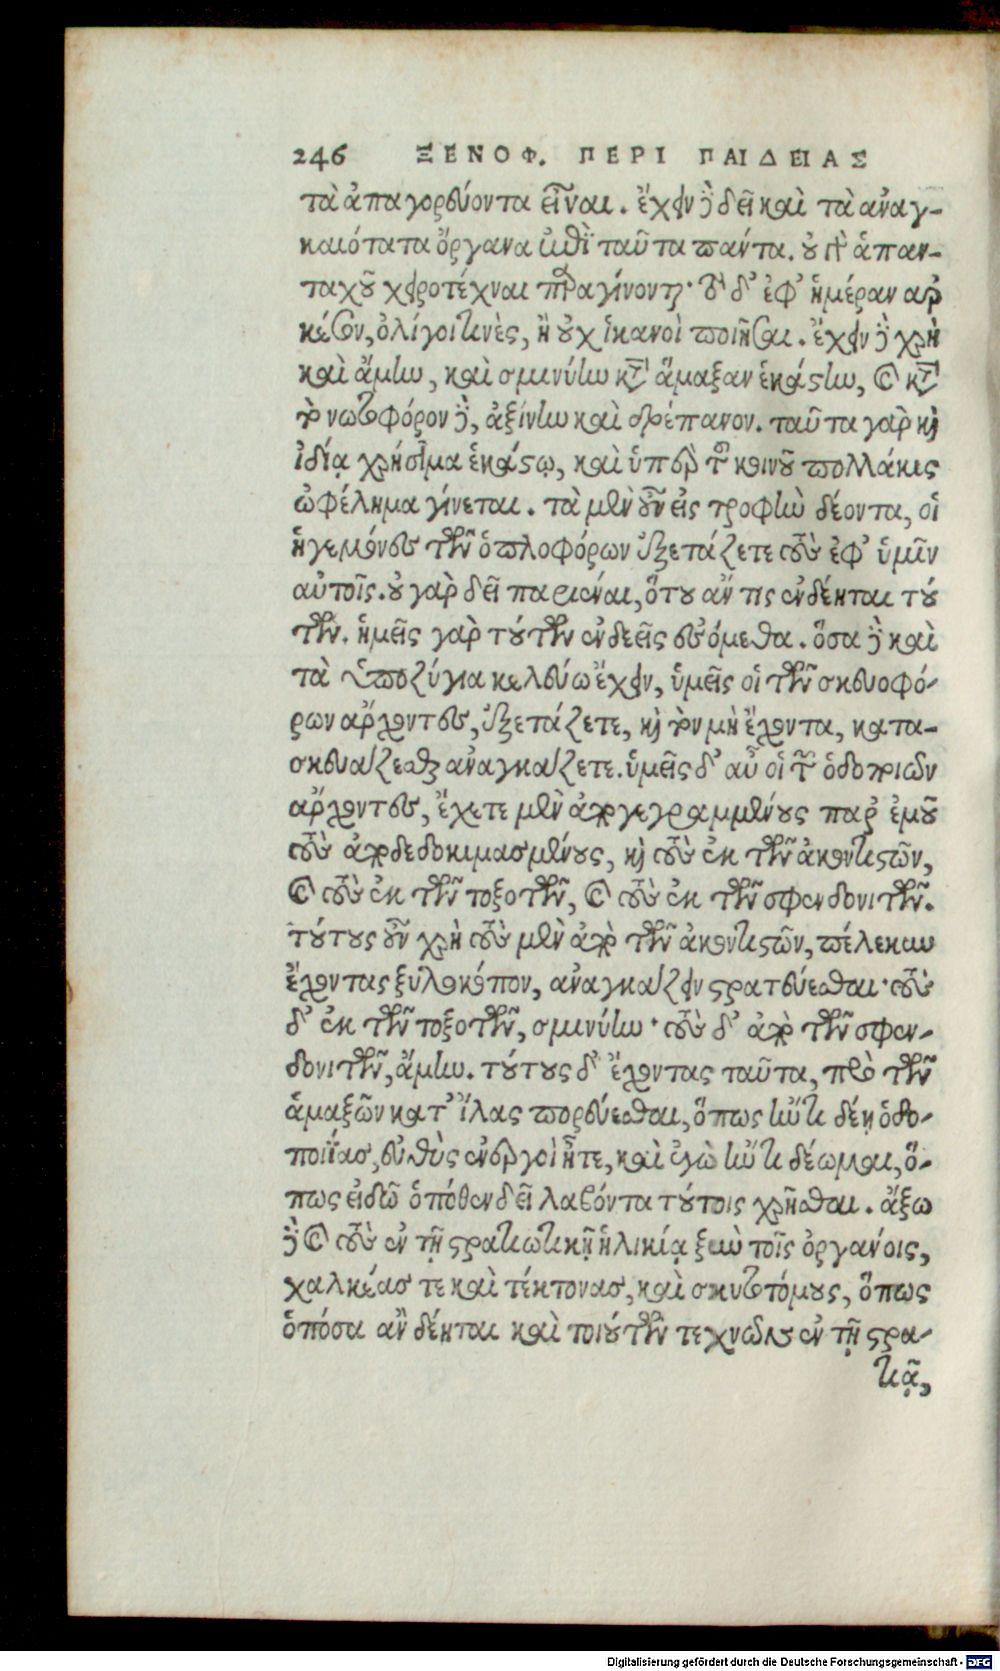 246 ΞΕΝΟΦ. ΠΕΡΙ ΠΑΙΔΕΙΑΣ
τὰ ἀπαγορεύοντα εἶναι. ἔχειν δὲ δεῖ καὶ τὰ ἀναγ-
καιότατα ὄργανα ἐπὶ ταῦτα πάντα. οὐ γὰρ ἁπαν-
ταχοῦ χειροτέχναι παραγίνονται· τὸ δ' ἐφ' ἡμέραν αρ
κέσον, ὀλίγοι τινὲς, ἢ οὐχ ἱκανοὶ ποιῆσαι. ἔχειν δὲ χρὴ
καὶ ἄμην, καὶ σμινύην κατὰ ἅμαξαν ἑκάστην, καὶ κατὰ
τὸν νωτοφόρον δὲ, ἀξίνην καὶ δρέπανον. ταῦτα γὰρ καὶ
ἰδίᾳ χρήσιμα ἑκάστῳ, καὶ ὑπὲρ τοῦ κοινοῦ πολλάκις
ὠφέλημα γίνεται. τὰ μὲν οὖν εἰς τροφὴν δέοντα, οἱ
ἡγεμόνες τῶν ὁπλοφόρων ἐξετάζετε τοὺς ἐφ' ὑμῖν
αὐτοῖς. οὐ γὰρ δεῖ παριέναι, ὅτου ἄν τις ἐνδέηται τού
των. ἡμεῖς γὰρ τούτων ἐνδεεῖς ἐσόμεθα. ὅσα δὲ καὶ
τὰ ὑποζύγια κελεύω ἔχειν, ὑμεῖς οἱ τῶν σκευοφό-
ρων ἄρχοντες, ἐξετάζετε, καὶ τὸν μὴ ἔχοντα, κατα-
σκευάζεσθαι ἀναγκάζετε. ὑμεῖς δ' αὖ οἱ τῶν ὁδοποιῶν
ἄρχοντες, ἔχετε μὲν ἀπογεγραμμένους παρ' ἐμοῦ
τοὺς ἀποδεδοκιμασμένους, καὶ τοὺς ἐκ τῶν ἀκοντιστῶν,
καὶ τοὺς ἐκ τῶν τοξοτῶν, καὶ τοὺς ἐκ τῶν σφενδονιτῶν.
τούτους οὖν χρὴ τοὺς μὲν ἀπὸ τῶν ἀκοντιστῶν, πέλεκυν
ἔχοντας ξυλοκόπον, ἀναγκάζειν στρατεύεσθαι· τοὺς
δ' ἐκ τῶν τοξοτῶν, σμινύην· τοὺς δ' ἀπὸ τῶν σφεν-
δονιτῶν, ἄμην. τούτους δ' ἔχοντας ταῦτα, πρὸ τῶν
ἁμαξῶν κατ' ἴλας πορεύεσθαι, ὅπως ἤν τι δέῃ ὁδο-
ποιΐας, εὐθὺς ἐνεργοὶ ἦτε, καὶ ἐγὼ ἤν τι δέωμαι, ὅ-
πως εἰδῶ ὁπόθεν δεῖ λαβόντα τούτοις χρῆσθαι. ἄξω
δὲ καὶ τοὺς ἐν τῇ στρατιωτικῇ ἡλικίᾳ ξὺν τοῖς ὀργάνοις,
χαλκέας τε καὶ τέκτονας, καὶ σκυτοτόμους, ὅπως
ὁπόσα ἂν δέηται καὶ τοιούτων τεχνῶν ἐν τῇ στρα-
τιᾷ,
Digitalisierung gefördert durch die Deutsche Forschungsgemeinschaft - DFG